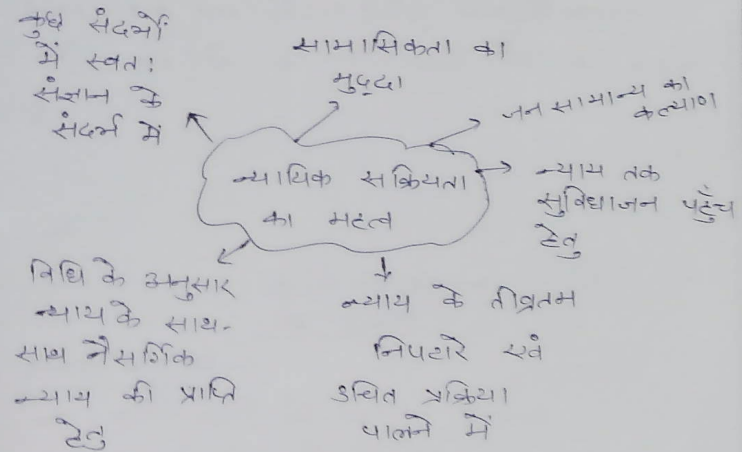 कुछ संदर्भों
में स्वत:
संज्ञान के
संदर्भ में
सामासिकता का
मुद्दा
जन सामान्य का
कल्याण
न्यायिक सक्रियता
का महत्व
न्याय तक
सुविधाजन पहुँच
हेतु
विधि के अनुसार
न्याय के साथ-
साथ नैसर्गिक
न्याय की प्राप्ति
हेतु
न्याय के तीव्रतम
निपटारे एवं
उचित प्रक्रिया
पालने में